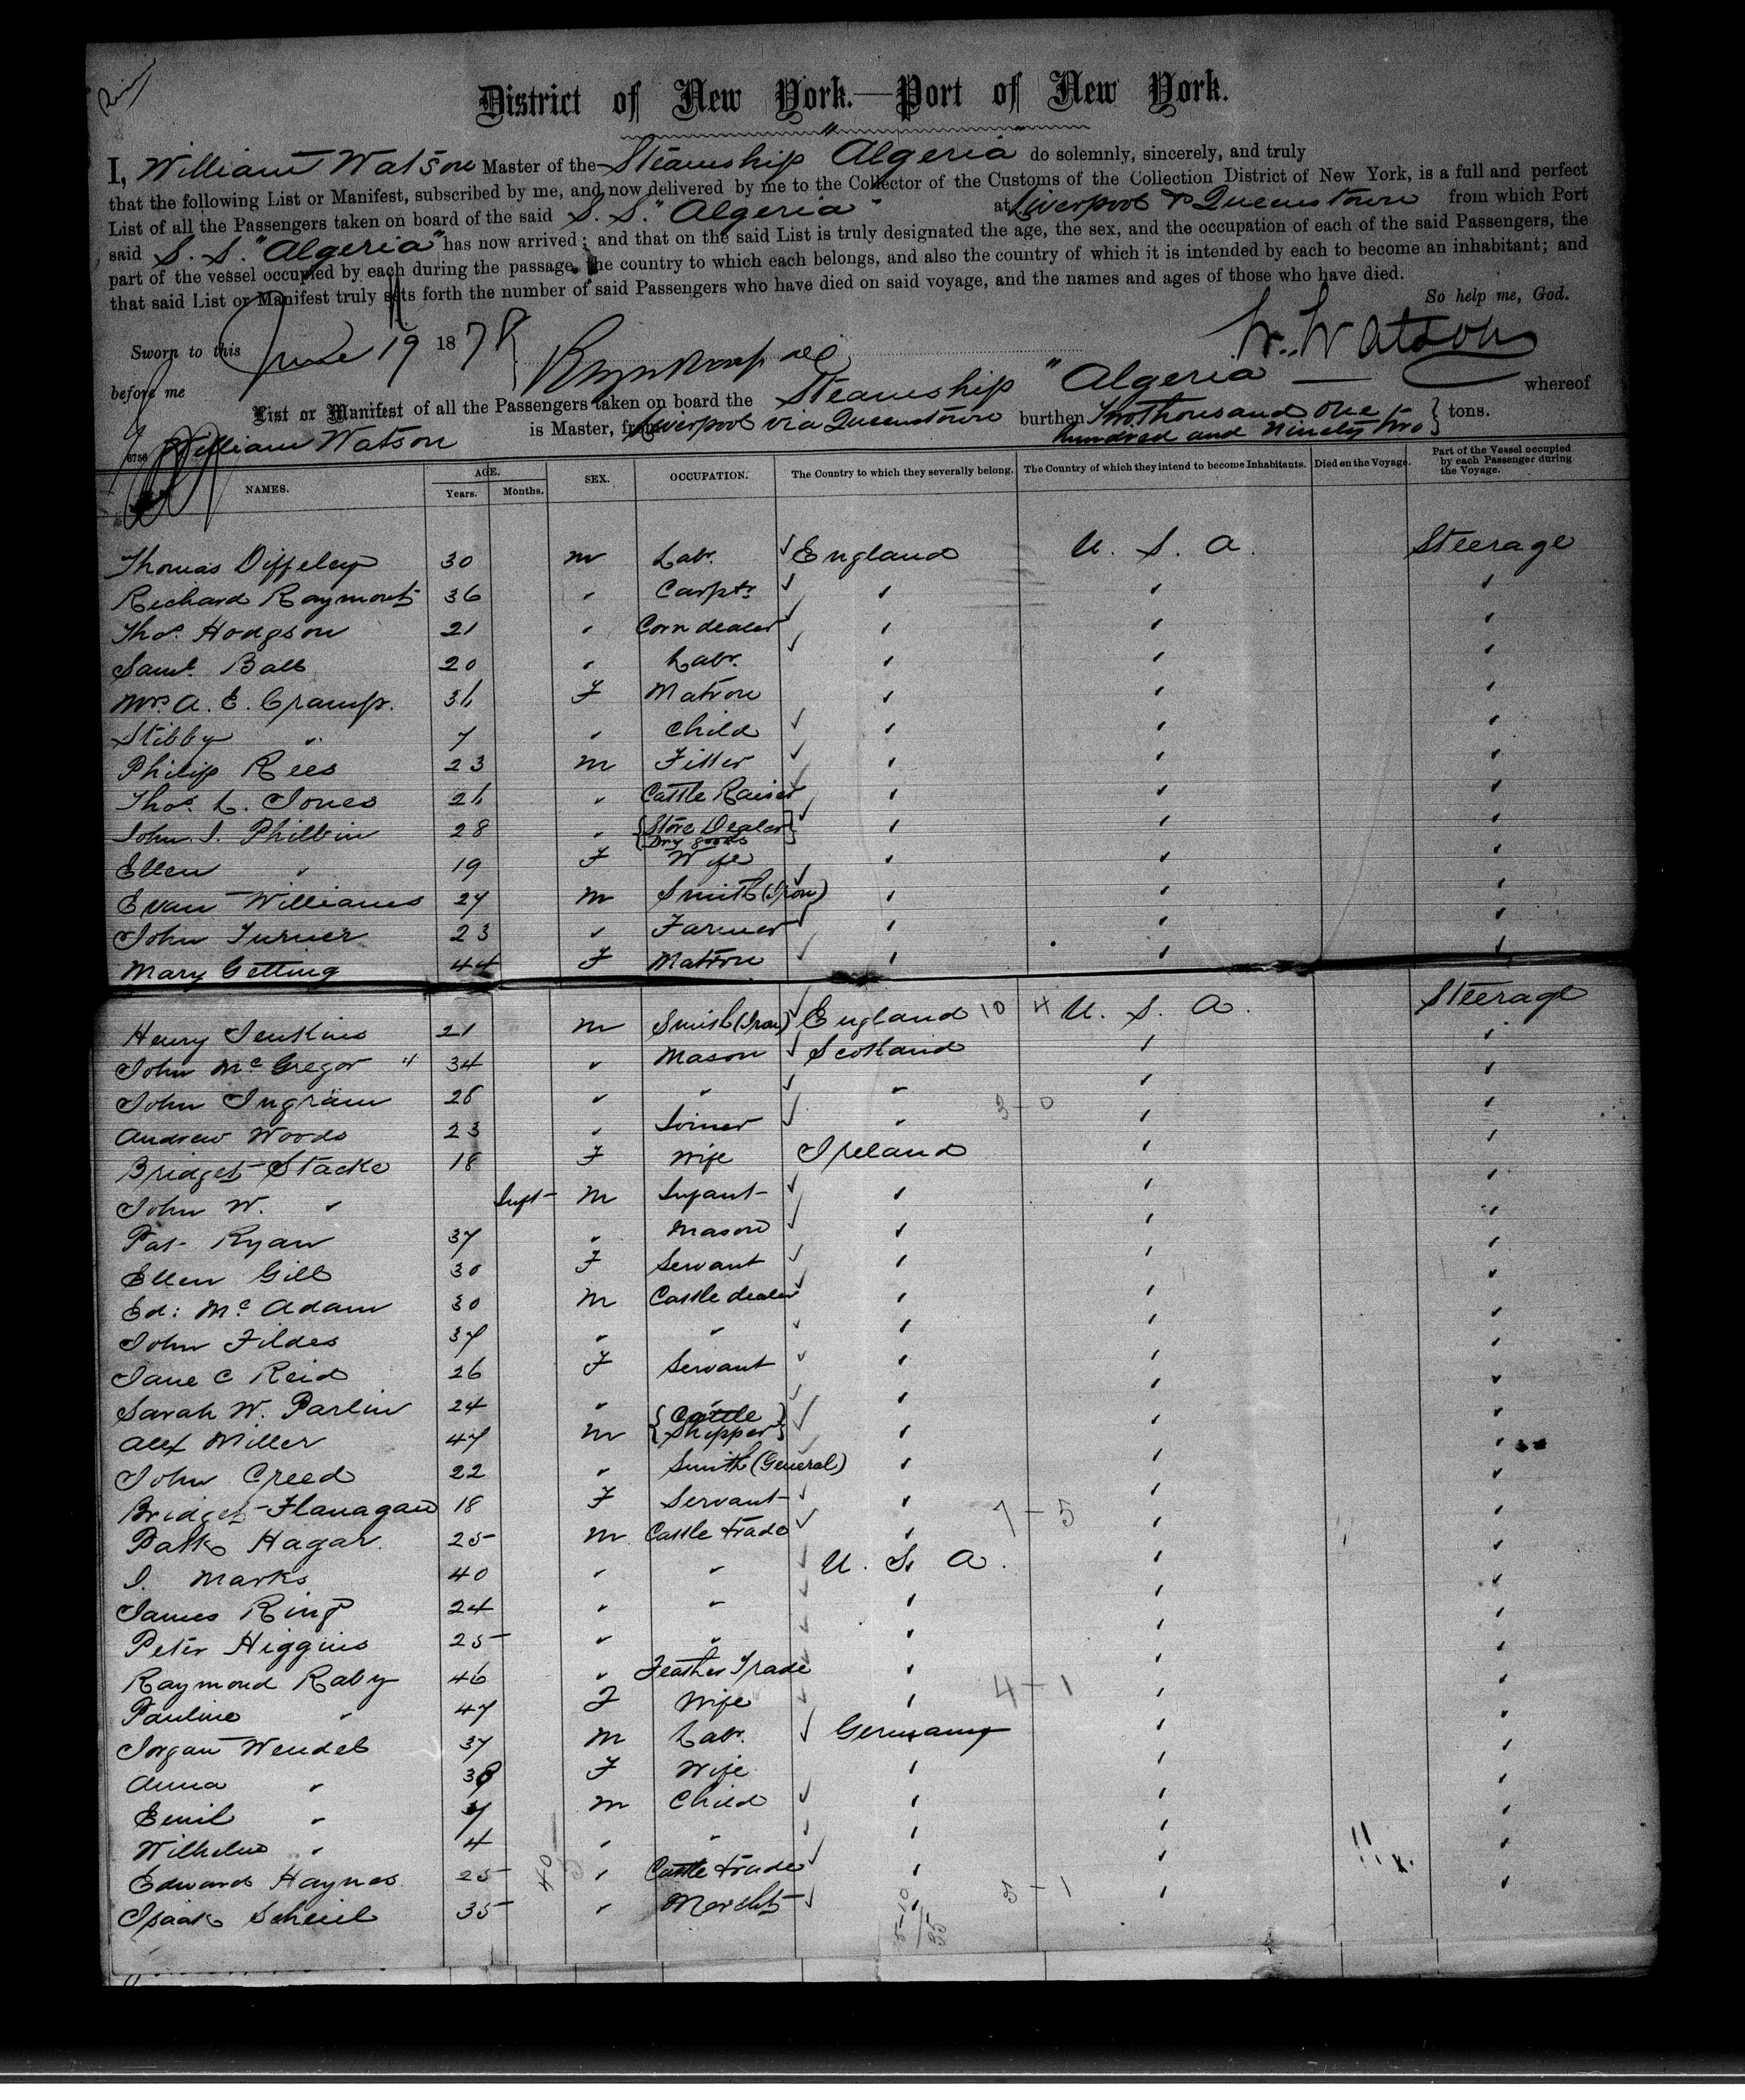 District of New York.—Port of New York.
I, William Watson Master of the Steamship Algeria do solemnly, sincerely, and truly
that the following List or Manifest, subscribed by me, and now delivered by me to the Collector of the Customs of the Collection District of New York, is a full and perfect
List of all the Passengers taken on board of the said S. S. "Algeria" at Liverpool & Queenstown from which Port
said S. S. "Algeria" has now arrived; and that on the said List is truly designated the age, the sex, and the occupation of each of the said Passengers, the
part of the vessel occupied by each during the passage, the country to which each belongs, and also the country of which it is intended by each to become an inhabitant; and
that said List or Manifest truly sets forth the number of said Passengers who have died on said voyage, and the names and ages of those who have died.
So help me, God.
Sworn to this June 19 1878 W. Watson
before me
List or Manifest of all the Passengers taken on board the Steamship "Algeria — whereof
William Watson is Master, from Liverpool via Queenstown burthen Two thousand one hundred and ninety two } tons.
6756
NAMES. AGE. Years. Months. SEX. OCCUPATION. The Country to which they severally belong. The Country of which they intend to become Inhabitants. Died on the Voyage. Part of the Vessel occupied by each Passenger during the Voyage.
Thomas Diffeley 30 m Labr. England U. S. A. Steerage
Richard Raymont 36 " Carptr " " "
Thos. Hodgson 21 " Corn dealer " " "
Saml. Ball 20 " Labr. " " "
Mrs. A. E. Cramp. 36 F Matron " " "
Stibby " 7 " Child " " "
Philip Rees 23 m Fitter " " "
Thos. L. Jones 26 " Cattle Raiser " " "
John J. Philbin 28 " {Store Dealer Dry goods} " " "
Ellen " 19 F Wife " " "
Evan Williams 27 m Smith (Iron) " " "
John Turner 23 " Farmer " " "
Mary Getting 44 F Matron " " "
Henry Jenkins 21 m Smith (Iron) England 10 4 U. S. A. Steerage
John McGregor " 34 " Mason Scotland " "
John Ingram 28 " " " " "
Andrew Woods 23 " Joiner " 3-0 " "
Bridget Stacke 18 F Wife Ireland " "
John W. " Inft m Infant " " "
Pat Ryan 37 " Mason " " "
Ellen Gill 30 F Servant " " "
Ed: McAdam 30 m Cattle dealer " " "
John Fildes 37 " " " " "
Jane C Reid 26 F Servant " " "
Sarah W. Parlin 24 " " " " "
Alex Miller 47 m {Cattle Shipper} " " "
John Creed 22 " Smith (General) " " "
Bridget Flanagan 18 F Servant " 7-5 " "
Patk Hagar. 25 m Cattle trade " " "
J. Marks 40 " " U. S. A. " "
James Ring 24 " " " " "
Peter Higgins 25 " " " " "
Raymond Raby 46 " Feather Trade " " "
Pauline " 47 F Wife " 4-1 " "
Jorgan Wendel 37 m Labr. Germany " "
Anna " 38 F Wife " " "
Emil " 7 m Child " " "
Wilhelm " 4 " " " " "
Edward Haynes 25 " Cattle trade " " "
Isaak Scheiel 35 " Mercht " 3-1 " "
40